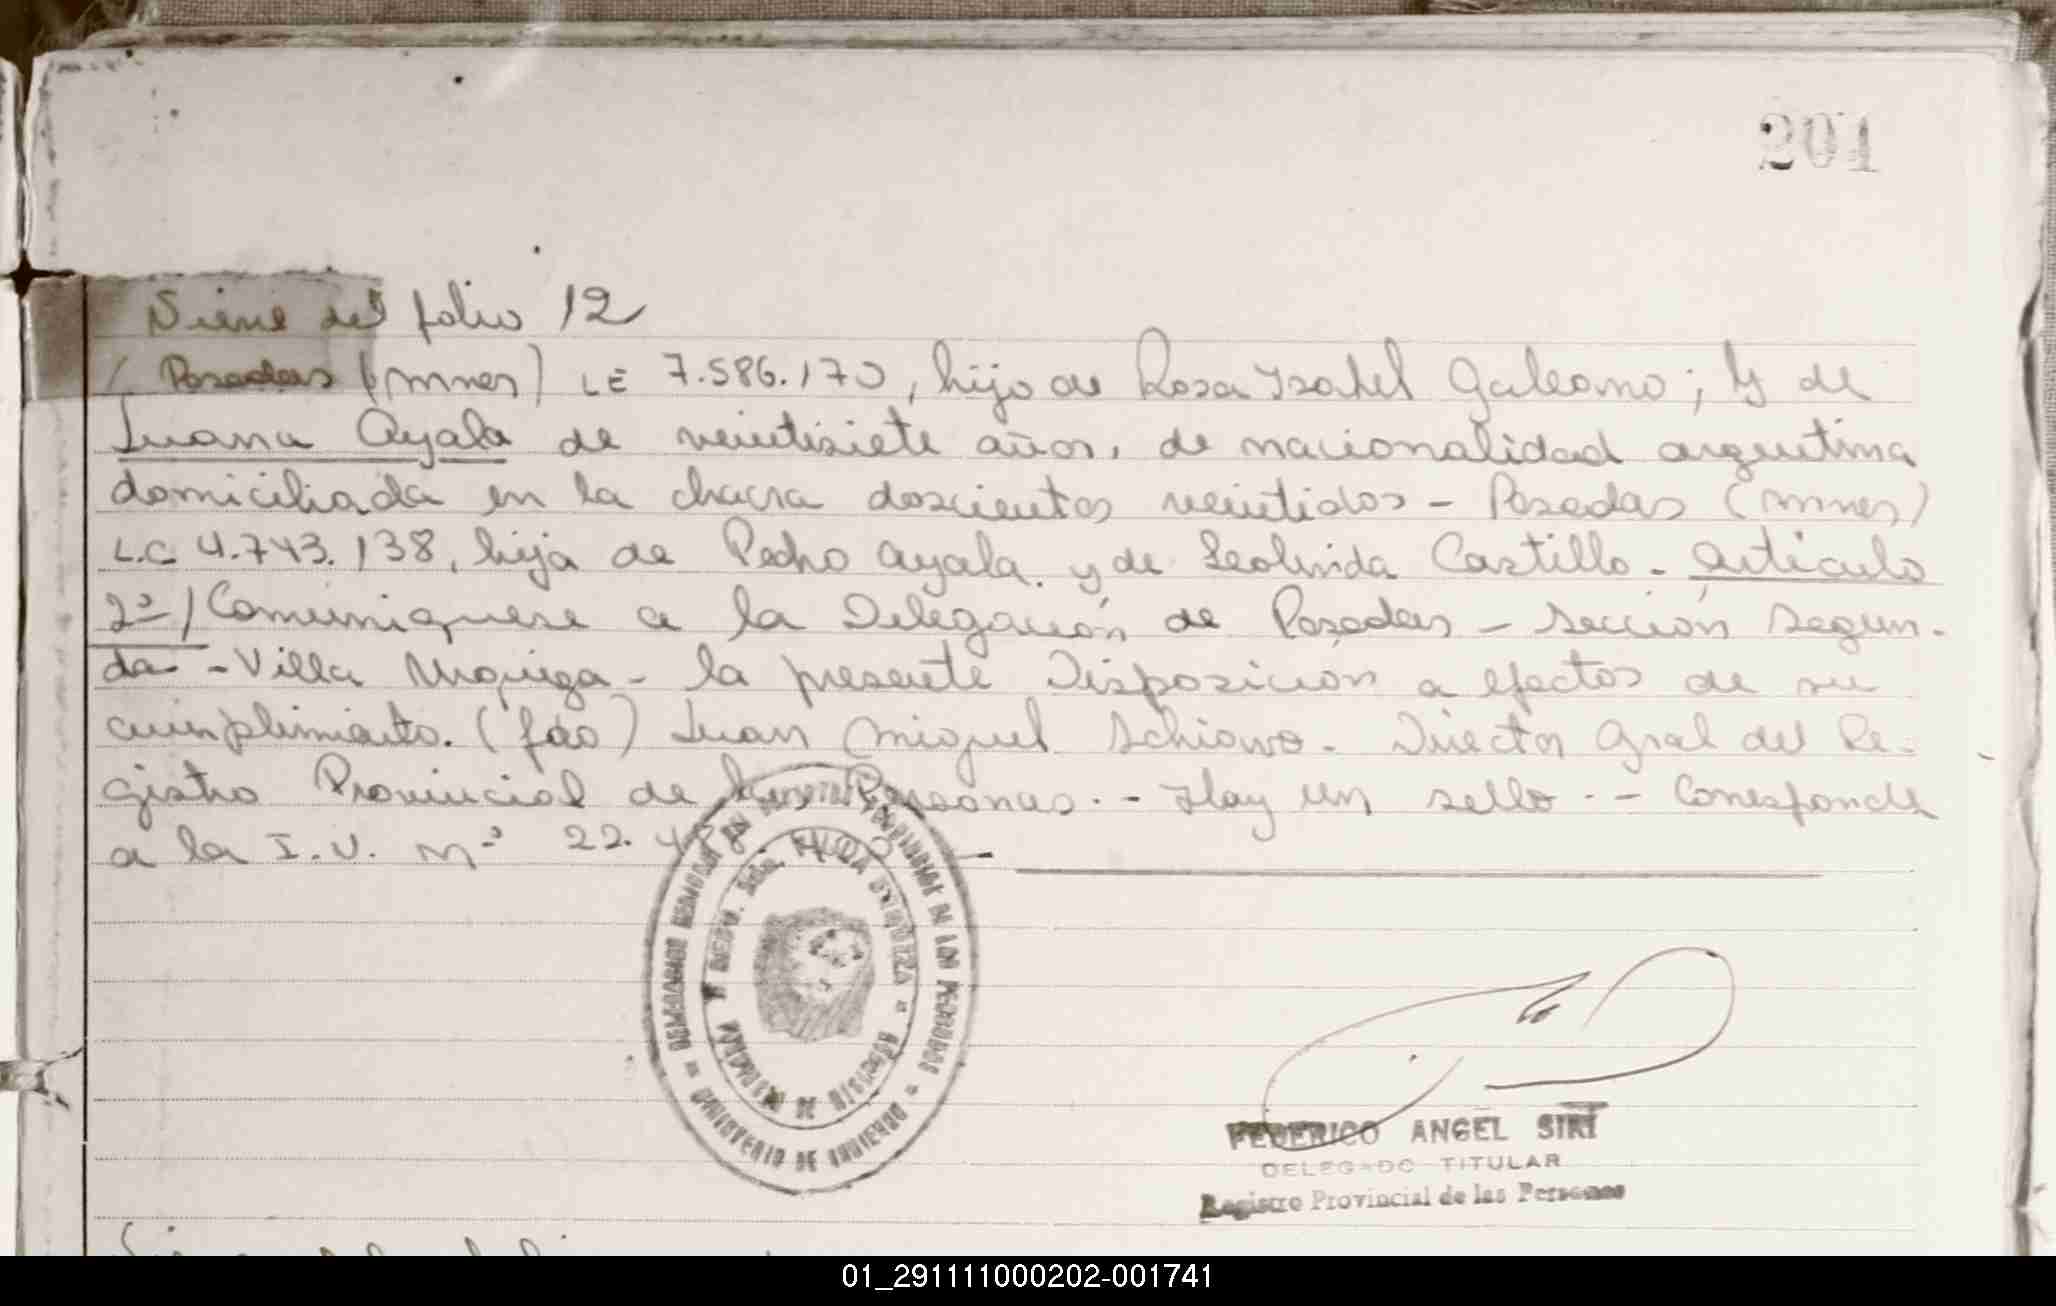 201
Viene del folio 12
/ Posadas (Mnes) LE 7.586.170, hijo de Rosa Ysabel Galeano; y de
Juana Ayala de veintisiete años, de nacionalidad argentina
domiciliada en la chacra doscientos veintidos - Posadas (Mnes)
L.C 4.743.138, hija de Pedro Ayala y de Leolinda Castillo. Artículo
2º/ Comuniquese a la Delegación de Posadas - Sección Segun-
da - Villa Urquiza - la presente Disposición a efectos de su
cumplimiento. (fdo) Juan Miguel Schiavo. Director Gral del Re-
gistro Provincial de las Personas. - Hay un sello. - Corresponde
a la I.V. Nº 22.488
MINISTERIO DE GOBIERNO PROVINCIAL DE LAS PERSONAS
VILLA URQUIZA
PROVINCIA DE MISIONES
FEDERICO ANGEL SIRI
DELEGADO TITULAR
Registro Provincial de las Personas
01_291111000202-001741